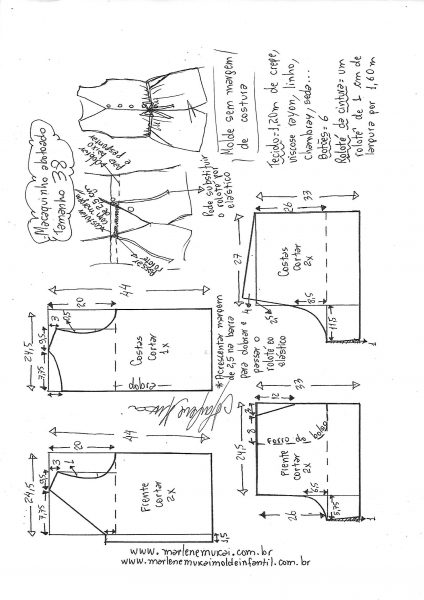 Macaquinho abotoado
Tamanho 38
Molde sem margem
de costura
Tecido=1,20m de crepe,
viscose rayon, linho,
chambray, seda...
Botões = 6
Rolotê da cintura = um
rolotê de 1 cm de
largura por 1,60m
Pode substituir
o rolotê por
elástico
*Acrescentar margem
de 2,5 na barra
para dobrar e
passar o
rolotê ou
elástico
44
20
3
24,5
9,5
7,75
Costas
cortar
1x
dobra
44
20
3
1
24,5
9,5
7,75
Frente
cortar
2x
1,5
33
26
27
4
25
8,5
11,5
1
Costas
cortar
2x
33
12
24,5
8
forro do bolso
Frente
cortar
2x
6,5
5,75
26
1
www.marlenemukai.com.br
www.marlenemukaimoldeinfantil.com.br